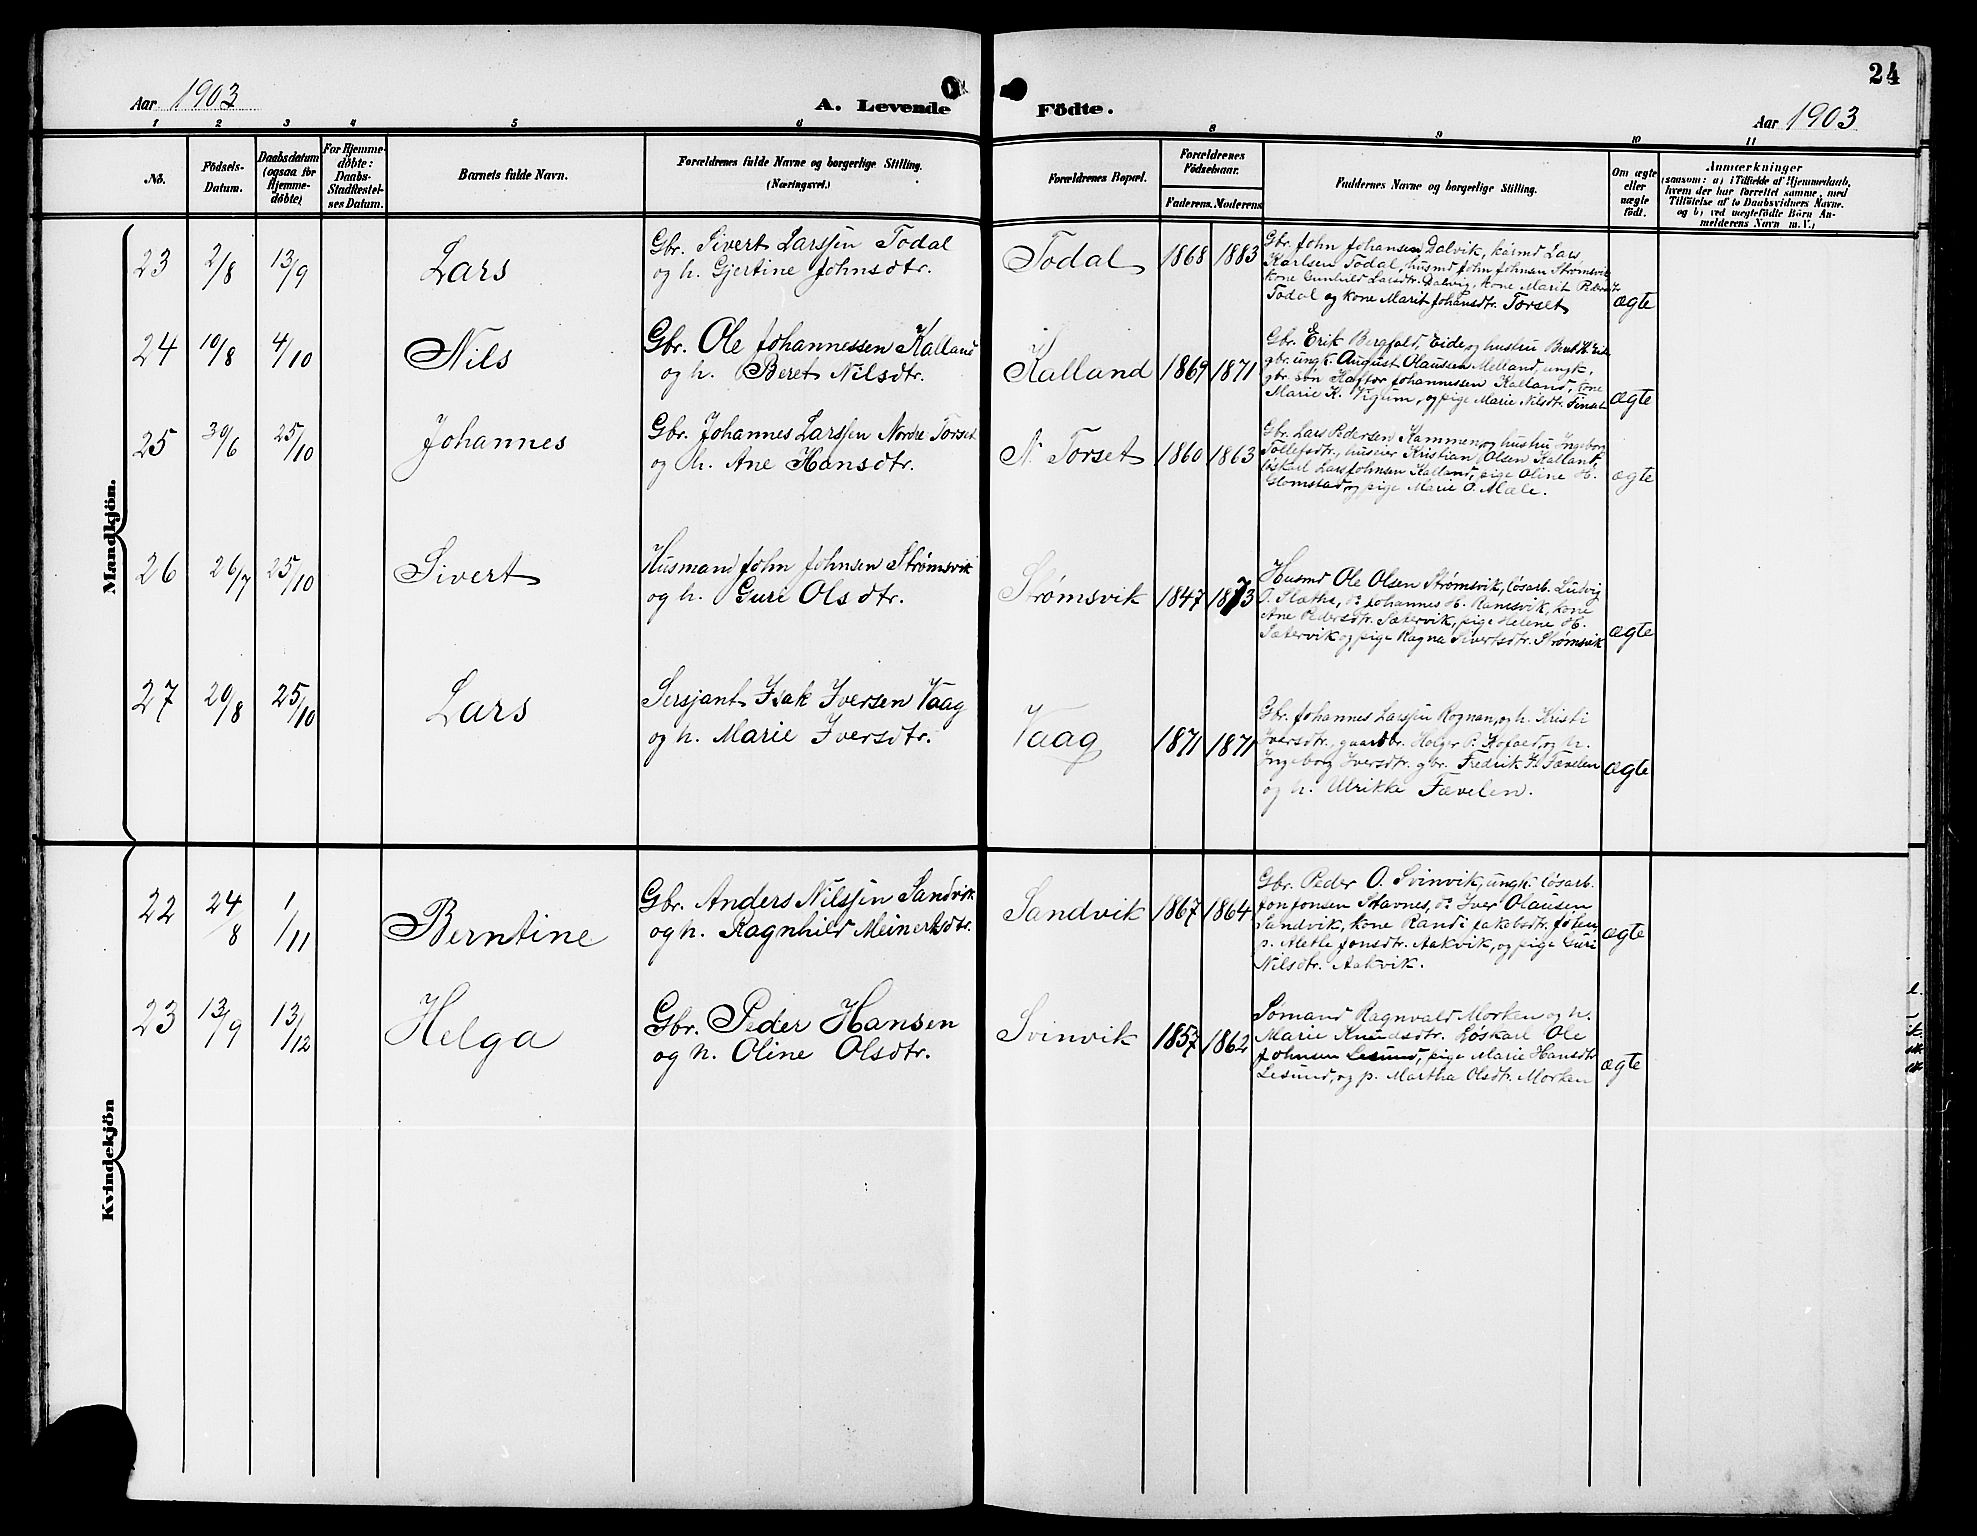 24
Aar 1903
A. Levende Födte.
Aar 1903
1 2 3 4 5 6 8 9 10 11
No.
Födsels-
Datum.
Daabsdatum
(ogsaa for
Hjemme-
döbte)
For Hjemme-
döbte:
Daabs-
Stadfæstel-
ses Datum.
Barnets fulde Navn.
Forældrenes fulde Navne og borgerlige Stilling.
(Næringsvei.)
Forældrenes Bopæl.
Forældrenes
Födselsaar.
Faderens. Moderens
Faddernes Navne og borgerlige Stilling.
Om ægte
eller
uægte
födt.
Anmærkninger
(saasom: a) i Tilfælde af Hjemmedaab,
hvem der har forrettet samme, med
Tilföielse af to Daabsvidners Navne.
og b) ved uægtefödte Börn An-
melderens Navn m. V.)
Mandkjön.
23 2/8 13/9 Lars
Gbr. Sivert Larssen Todal
og h. Gjertine Johnsdtr.
Todal 1868 1883
Gbr. John Johansen Dalvik, kårmd Lars
Karlsen Todal, husmd John Johnsen Strømsvik
kone Gunhild Larsdtr. Dalvig, kone Marit
Todal og kone Marit Johansdtr. Torset
ægte
24 10/8 4/10 Nils
Gbr. Ole Johannessen Kalland
og h. Beret Nilsdtr.
Kalland 1869 1871
Gbr. Erik Bergfald, Eide og hustru
gbr. ungk. August Olausen Melland, ungk.
gbr. søn Johannessen Kalland, kone
Marie K. Vigum, og pige Marie Nilsdtr. Finset
ægte
25 30/6 25/10 Johannes
Gbr. Johannes Larssen Nordre Torset
og h. Ane Hansdtr.
N. Torset 1860 1863
Gbr. Lars Pedersen Kammen og hustru Ingeborg
Tollefsdtr., Kristian Olsen Kalland,
løskarl Lars Johnsen Kalland, pige Oline H.
Glomstad og pige Marie O. Mæle.
ægte
26 26/7 25/10 Sivert
Husmand John Johnsen Strømsvik
og h. Guri Olsdtr.
Strømsvik 1847 1873
Husmd Ole Olsen Strømsvik, løsarb. Ludvig
O. Slæthe, do Johannes H. Ramsvik, kone
Ane Pedersdtr. Sætervik, pige Helene H.
Sætervik og pige Ragna Sivertsdtr. Strømsvik
ægte
27 20/8 25/10 Lars
Sersjant Isak Iversen Vaag
og h. Marie Iversdtr.
Vaag 1871 1871
Gbr. Johannes Larssen Rognan, og h. Kristi
Iversdtr., gaardbr. Holger P. Kofoed, og h.
Ingeborg Iversdtr. gbr. Fredrik H. Fævelen
og h. Ulrikke Fævelen.
ægte
Kvindekjön
22 24/8 1/11 Berntine
Gbr. Anders Nilssen Sandvik
og h. Ragnhild Meinertsdtr.
Sandvik 1867 1864
Gbr. Peder O. Svinvik, ungk. løsarb.
Jon Jonsen Stavnes, do Iver Olausen
Sandvik, kone Randi Jakobsdtr.
p. Jonsdtr. Aakvik, og pige Guri
Nilsdtr. Aakvik.
ægte
23 13/9 13/12 Helga
Gbr. Peder Hansen
og h. Oline Olsdtr.
Svinvik 1857 1862
Sømand Ragnvald Morken og h.
Marie Knudsdtr. Løskarl Ole
Johnsen Lesund, pige Marie Hansdtr
Lesund, og p. Martha Olsdtr. Morken
ægte